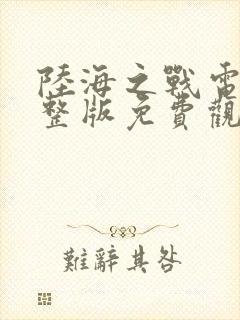 陸海之戰電
整版免費觀
難辭其咎